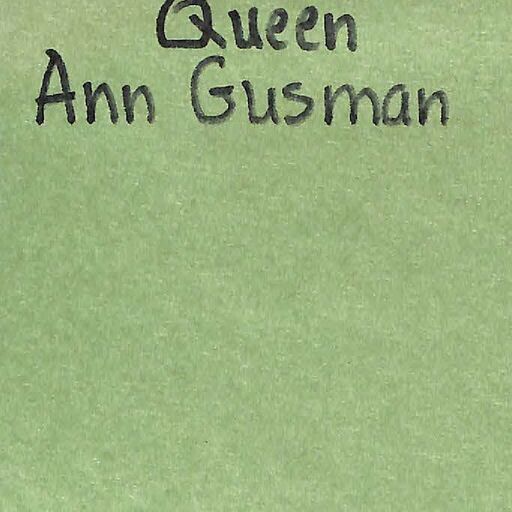 Queen
Ann Gusman